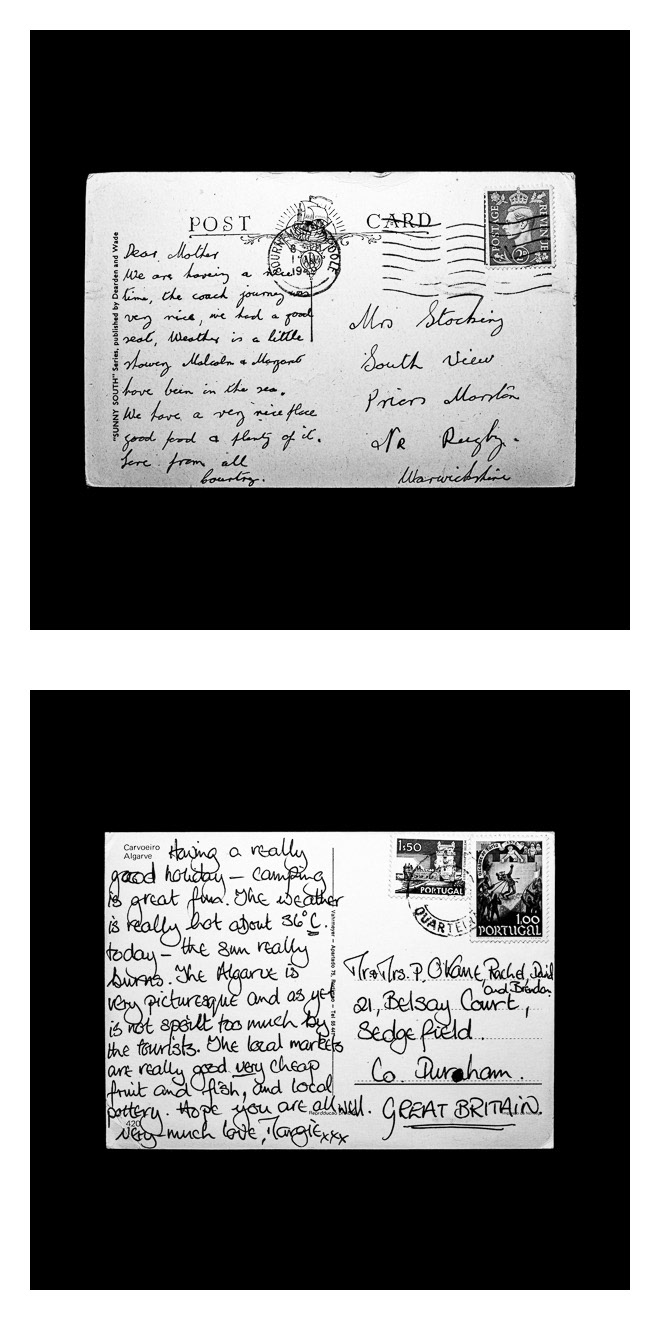 POST CARD
BOURNEMOUTH POOLE
8 SEP
1949
POSTAGE REVENUE
"SUNNY SOUTH" Series, published by Dearden and Wade
Dear Mother
We are having a nice
time, the coach journey was
very nice, we had a good
seat, Weather is a little
showery Malcolm & Margaret
have been in the sea.
We have a very nice place
good food & plenty of it.
Love from all
Mrs Stocking
South View
Priors Marston
Nr Rugby.
Warwickshire
Carvoeiro
Algarve
Having a really
good holiday – camping
is great fun. The weather
is really hot about 36°C.
today – the sun really
burns. The Algarve is
very picturesque and as yet
is not spoilt too much by
the tourists. The local markets
are really good very cheap
fruit and fish, and local
pottery. Hope you are all well.
very much love, Margie xxx
420
1$50
PORTUGAL
1.00
PORTUGAL
QUARTEIRA
Mr & Mrs. P. O'Kane, Rachel, David
and Brendan
21, Belsay Court,
Sedgefield.
Co. Durham.
GREAT BRITAIN.